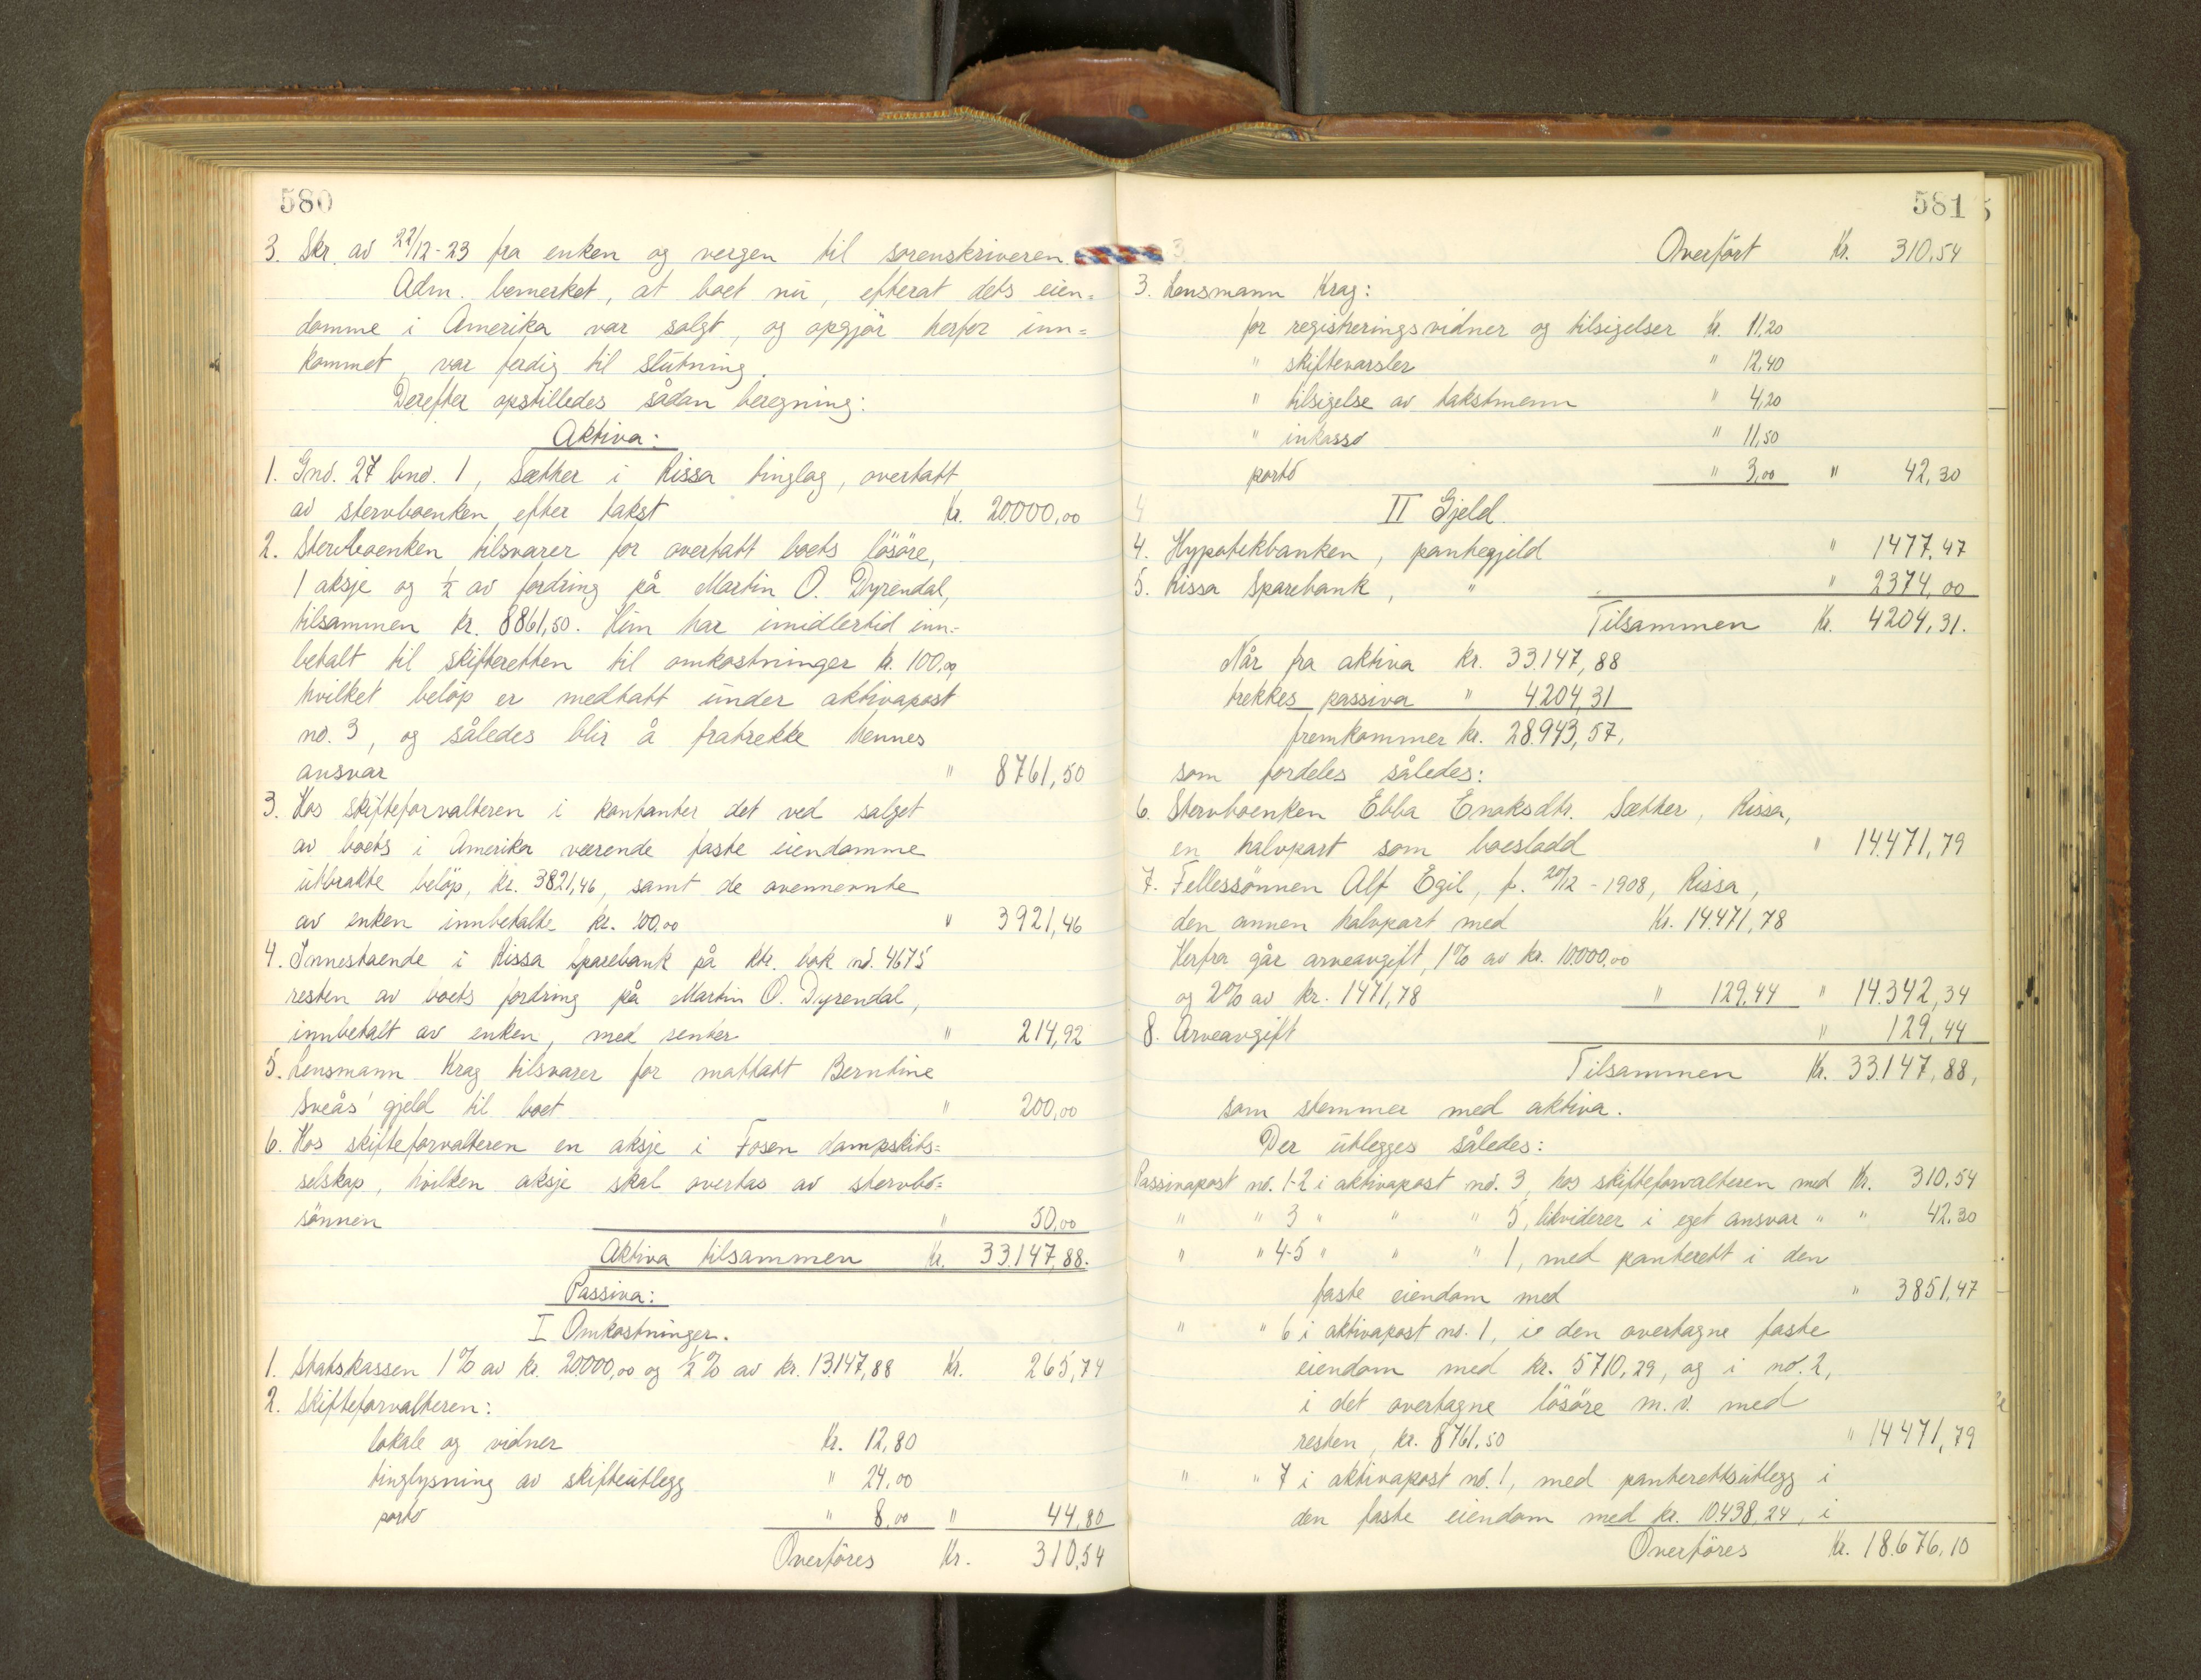 580
3. Skr. av 22/12-23 fra enken og vergen til sorenskriveren
Adm. bemerket, at boet nu, efterat dets eien=
domme i Amerika var solgt, og opgjör herfor inn=
kommet, var ferdig til slutning.
Derefter opstilledes sådan beregning:
Aktiva:
1. Gno. 27 bno. 1, Sæther i Rissa tinglag, overtatt
av stervboenken efter takst Kr. 20.000,00
2. Stervboenken tilsvarer for overtatt boets lösöre,
1 aksje og ½ av fordring på Martin O. Dyrendal,
tilsammen kr. 8861,50. Hun har imidlertid inn=
betalt til skifteretten til omkostninger kr. 100,00,
hvilket belöp er medtatt under aktivapost
no. 3, og således blir å fratrekke hennes
ansvar " 8761,50
3. Hos skifteforvalteren i kontanter det ved salget
av boets i Amerika værende faste eiendomme
utbrakte belöp, kr. 3821,46, samt de ovennevnte
av enken innbetalte kr. 100,00 " 3921,46
4. Innestaende i Rissa Sparebank på ktr. bok no. 4675
resten av boets fordring på Martin O. Dyrendal,
innbetalt av enken, med renter " 214,92
5. Lensmann Krag tilsvarer for mottatt Berntine
Sveås' gjeld til boet " 200,00
6. Hos skifteforvalteren en aksje i Fosen dampskibs=
selskap, hvilken aksje skal overtas av stervbo=
sönnen " 50,00
Aktiva tilsammen Kr. 33.147,88.
Passiva:
I Omkostninger.
1. Statskassen 1% av kr. 20000,00 og ½% av kr. 13147,88 Kr. 265,74
2. Skifteforvalteren:
lokale og vidner Kr. 12,80
tinglysning av skifteutlegg " 24,00
porto " 8,00 " 44,80
Overföres Kr. 310,54
581
Overfört Kr. 310,54
3. Lensmann Krag:
for registreringsvidner og tilsigelser Kr. 11,20
" skiftevarsler " 12,40
" tilsigelse av takstmenn " 4,20
" inkasso " 11,50
porto " 3,00 " 42,30
II Gjeld.
4. Hypotekbanken, pantegjeld " 1477,47
5. Rissa Sparebank, " " 2374,00
Tilsammen Kr. 4204,31.
Når fra aktiva kr. 33.147,88
trekkes passiva " 4204,31
fremkommer kr. 28.943,57,
som fordeles således:
6. Stervboenken Ebba Enoksdtr. Sæther, Rissa,
en halvpart som boeslodd " 14.471,79
7. Fellessönnen Alf Egil, f. 20/12-1908, Rissa,
den annen halvpart med Kr. 14.471,78
Herfra går arveavgift, 1% av kr. 10.000,00
og 2% av kr. 1471,78 " 129,44 " 14.342,34
8. Arveavgift " 129,44
Tilsammen Kr. 33.147,88,
som stemmer med aktiva.
Der utlegges således:
Passivapost no. 1-2 i aktivapost no. 3, hos skifteforvalteren med Kr. 310,54
" " 3 " " " 5, likviderer i eget ansvar " " 42,30
" " 4-5 " " " 1, med panterett i den
faste eiendom med " 3851,47
" " 6 i aktivapost no. 1, i den overtagne faste
eiendom med kr. 5710,29, og i no. 2,
i det overtagne lösöre m.v. med
resten, kr. 8761,50 " 14471,79
" " 7 i aktivapost no. 1, med panterettsutlegg i
den faste eiendom med kr. 10.438,24, i
Overföres Kr. 18.676,10